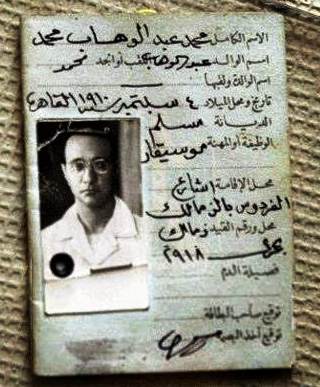 الاسم الكامل محمد عبد الوهاب محمد
اسم الوالد عبد الوهاب محمد
اسم الوالدة ولقبها
تاريخ ومحل الميلاد ٤ سبتمبر ١٩١٠ القاهرة
الديانة مسلم
الوظيفة أو المهنة موسيقار
محل الإقامة ١ شارع
الفردوس بالزمالك
محل ورقم القيد زمالك
٢٩١٨
فصيلة الدم
توقيع صاحب البطاقة
توقيع